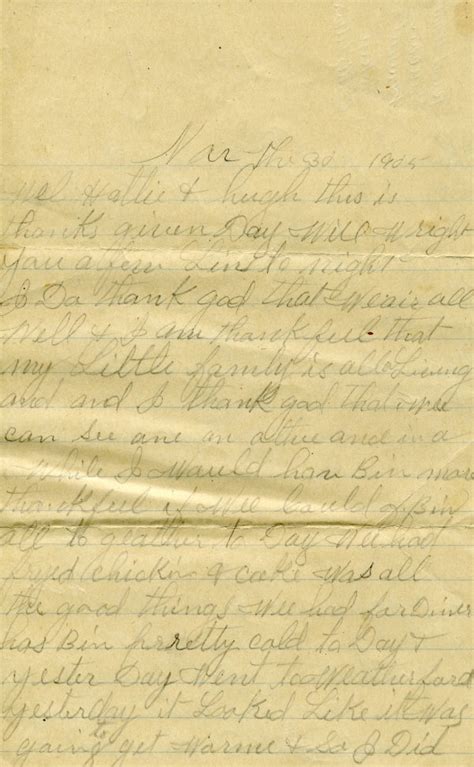 Nov the 30 1905
Wel Hattie & hugh this is
thanks given Day Will Wright
you a few Lins to night
I Do thank god that We air all
Well & I am thankfull that
my Little family is all Living
and and I thank god that wee
can See one an other and in a
While I Would hav Bin more
thankful if Wee Could of Bin
all to geather to Day Wee had
fryed chicken & cake Was all
the good things Wee had for Diner
has Bin prretty cold to Day &
yester Day Went to Weatherford
yesterday it Looked Like it Was
going to get Warme & So I Did